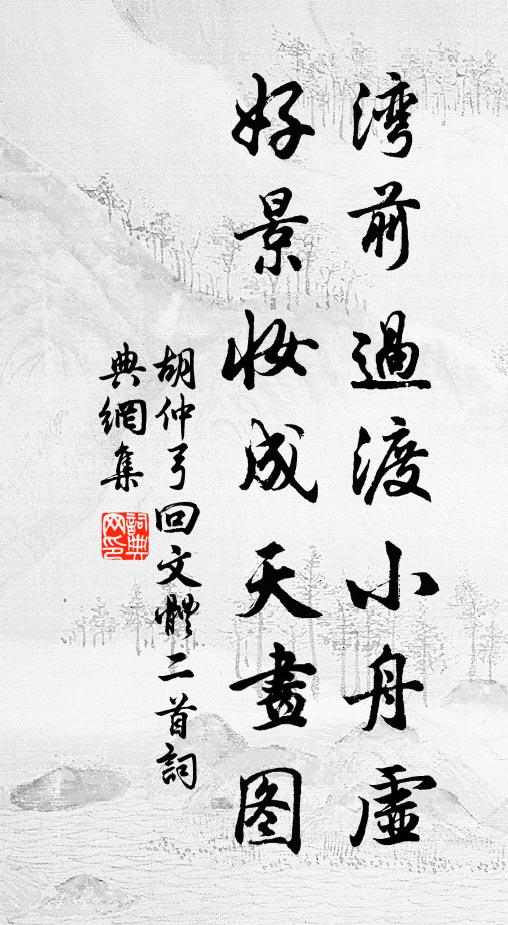 湾前過渡小舟虛
好景妝成天畫图
胡仲弓回文體二首詞
典網集
詞典
网印